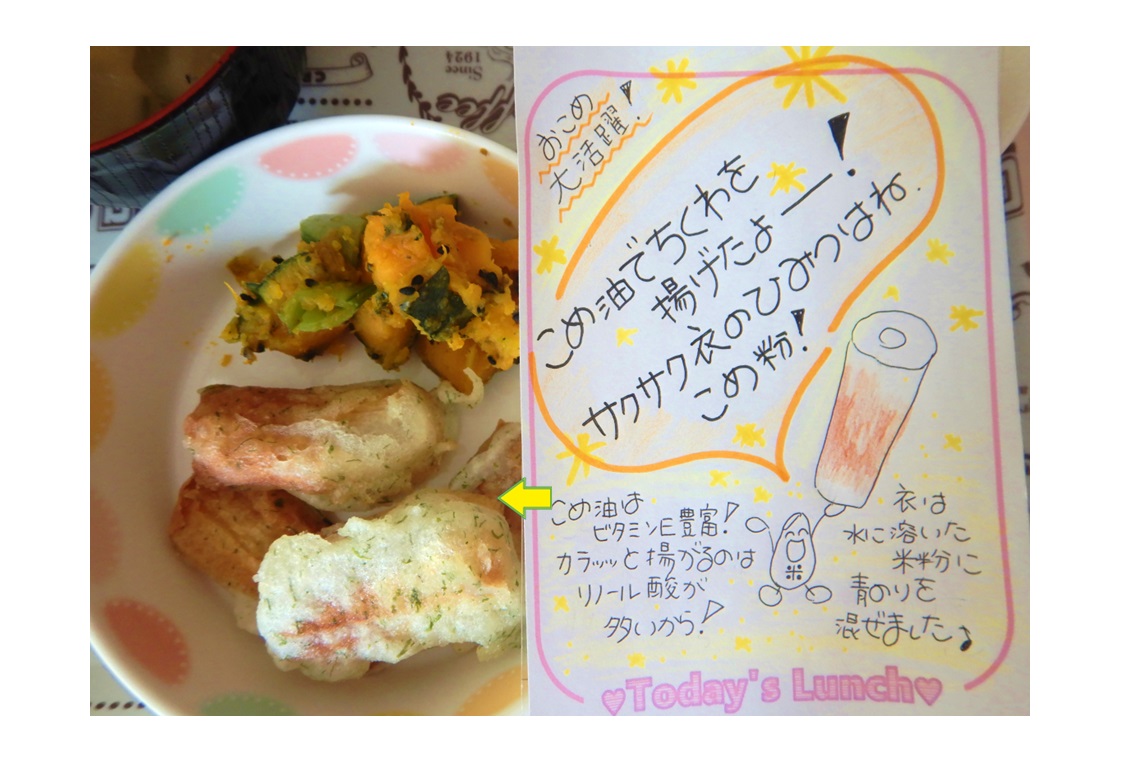 Since
1924
おこめ
大活躍!
こめ油でちくわを
揚げたよー!
サクサク衣のひみつはね.
こめ粉!
こめ油は
ビタミンE豊富!
カラッッと揚がるのは
リノール酸が
多いから!
米
衣は
水に溶いた
米粉に
青のりを
混ぜました♪
♥Today's Lunch♥